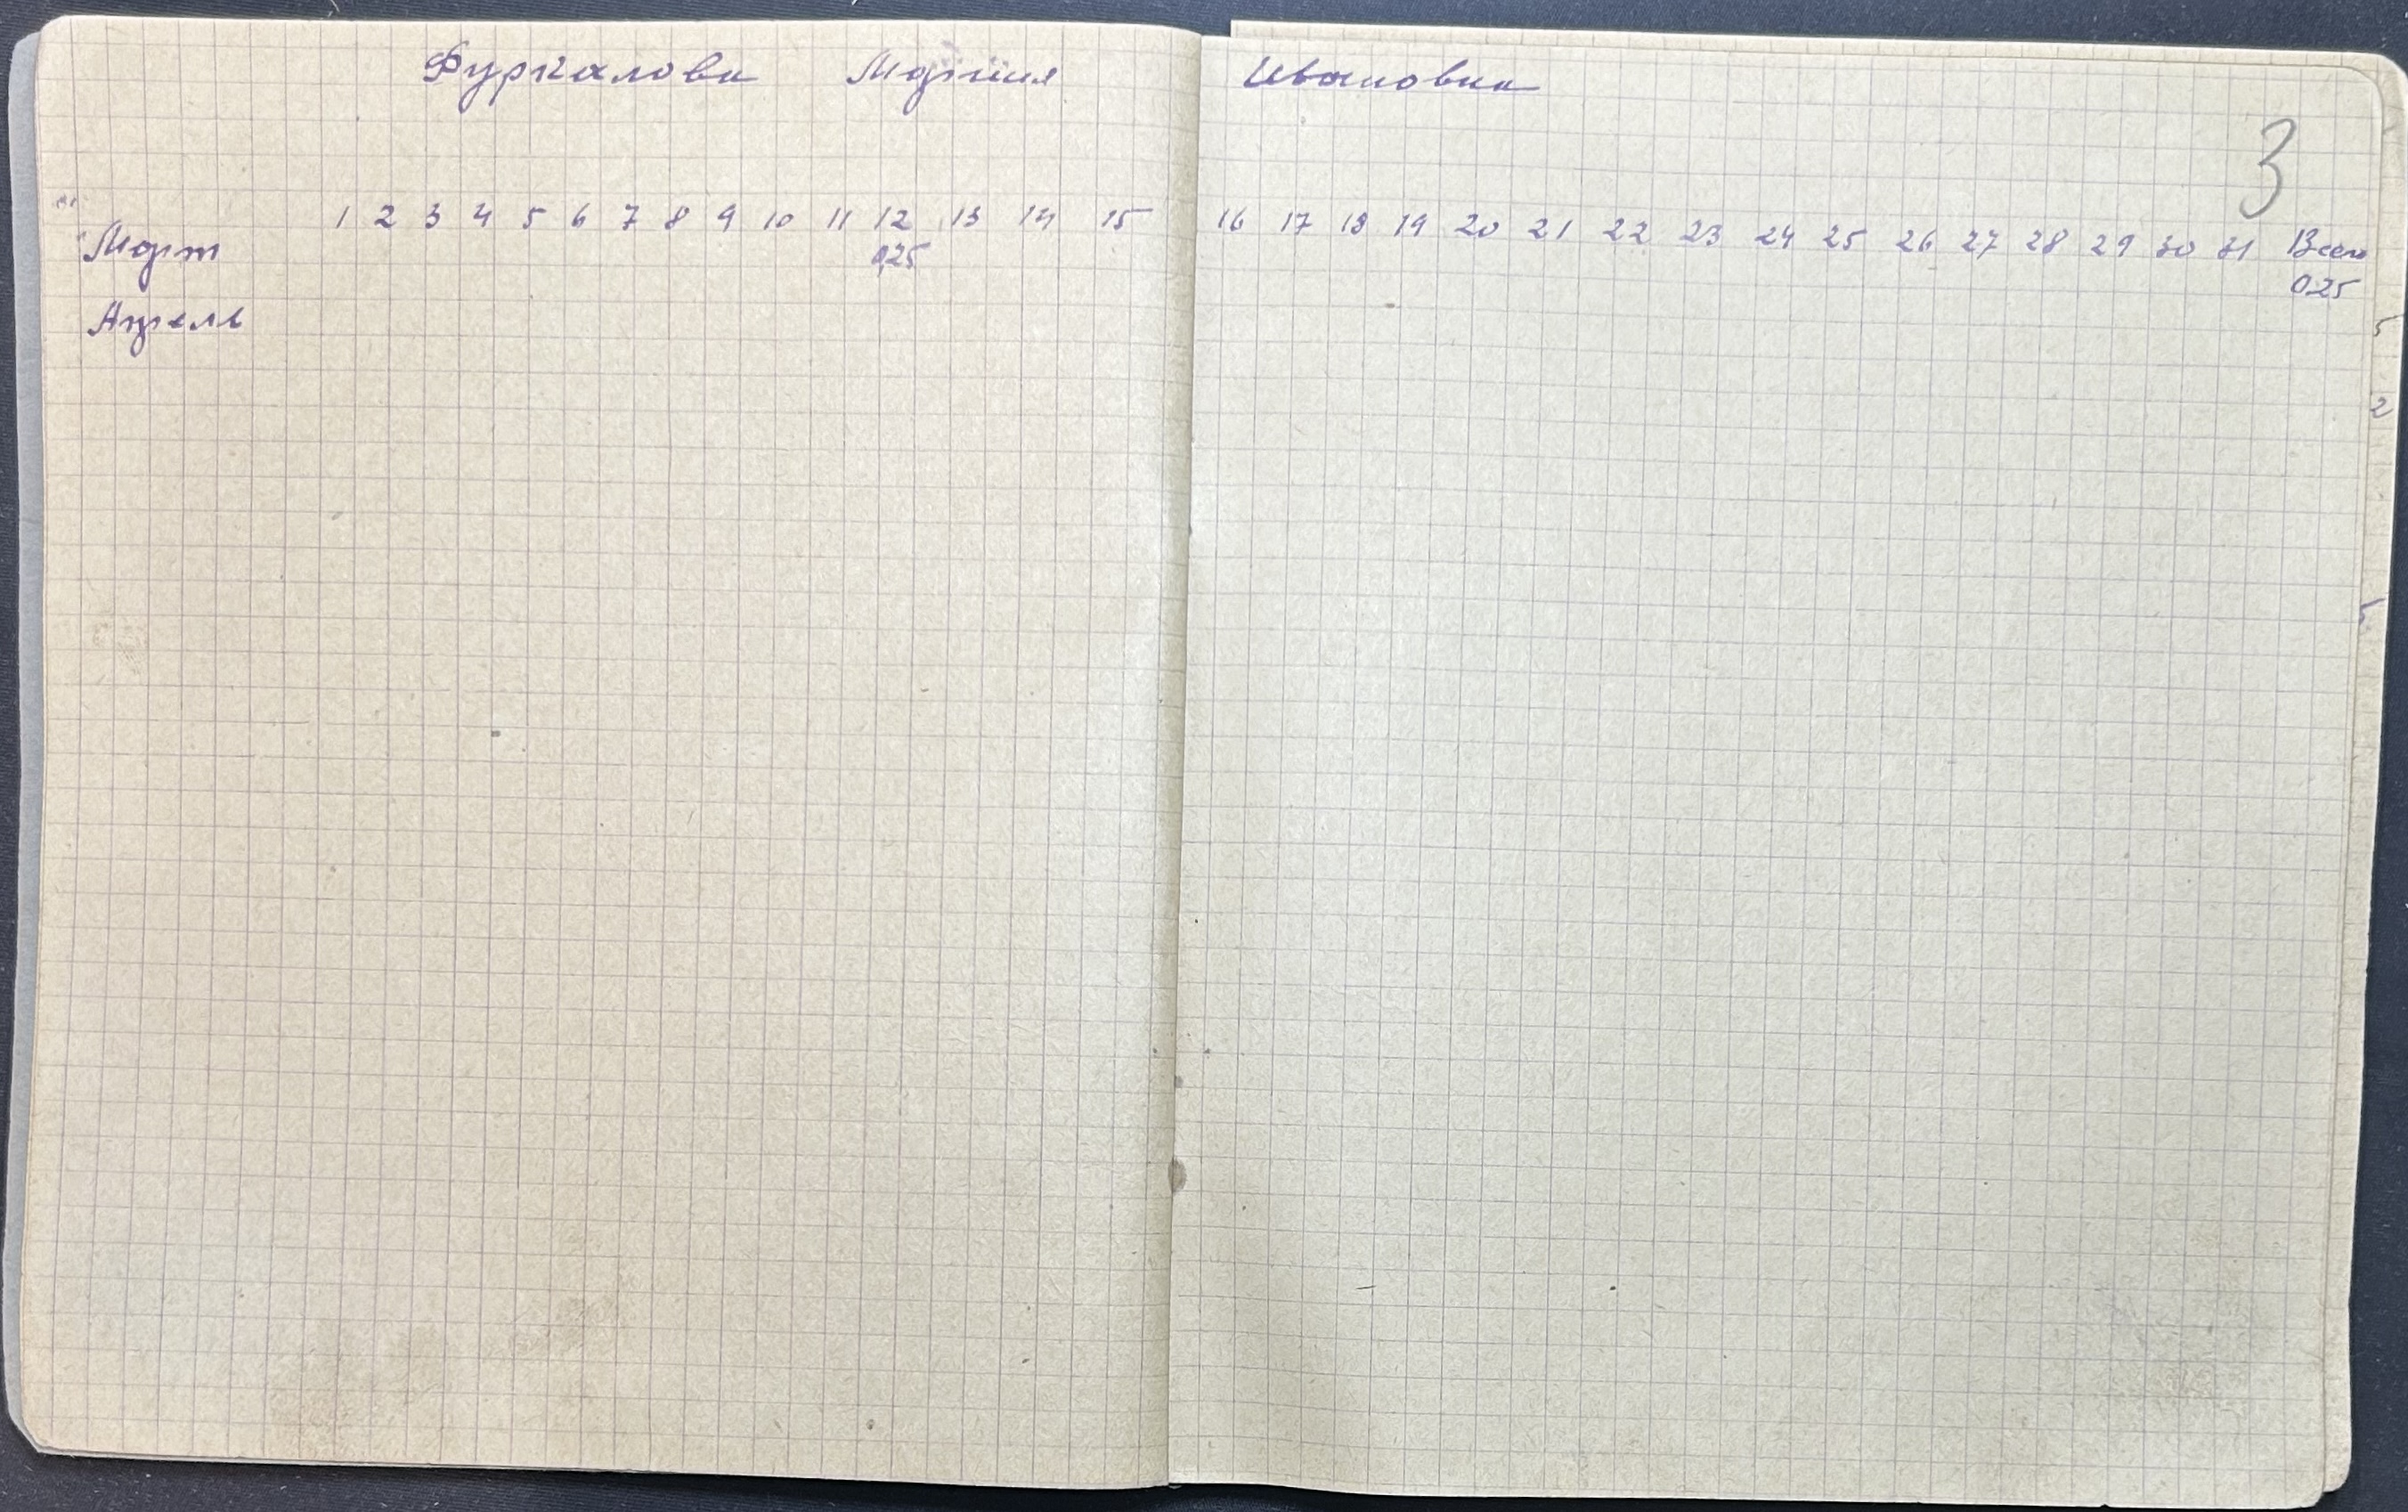 Фуркалова Мария Ивановна
3
1 2 3 4 5 6 7 8 9 10 11 12 13 14 15 16 17 18 19 20 21 22 23 24 25 26 27 28 29 30 31 Всего
Март 0,25 025
Апрель
5
2